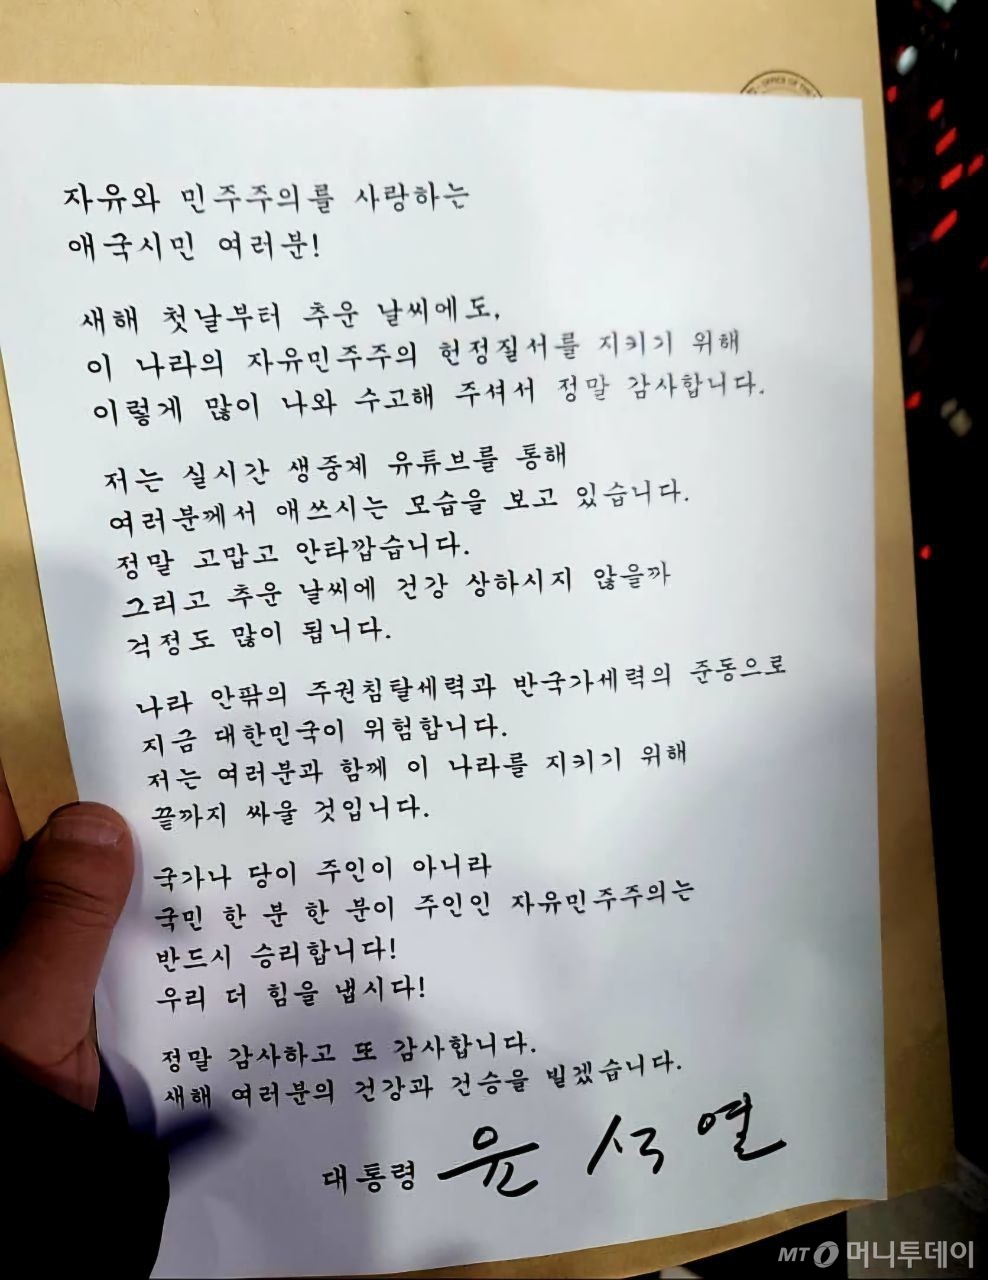 OFFICE OF THE
자유와 민주주의를 사랑하는
애국시민 여러분!
새해 첫날부터 추운 날씨에도,
이 나라의 자유민주주의 헌정질서를 지키기 위해
이렇게 많이 나와 수고해 주셔서 정말 감사합니다.
저는 실시간 생중계 유튜브를 통해
여러분께서 애쓰시는 모습을 보고 있습니다.
정말 고맙고 안타깝습니다.
그리고 추운 날씨에 건강 상하시지 않을까
걱정도 많이 됩니다.
나라 안팎의 주권침탈세력과 반국가세력의 준동으로
지금 대한민국이 위험합니다.
저는 여러분과 함께 이 나라를 지키기 위해
끝까지 싸울 것입니다.
국가나 당이 주인이 아니라
국민 한 분 한 분이 주인인 자유민주주의는
반드시 승리합니다!
우리 더 힘을 냅시다!
정말 감사하고 또 감사합니다.
새해 여러분의 건강과 건승을 빌겠습니다.
대통령 윤석열
MT 머니투데이